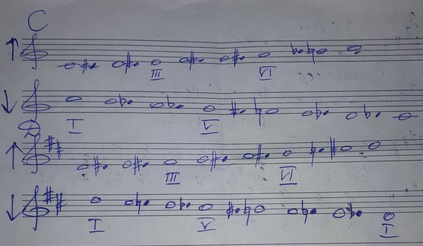 C
III VI
I V
D
III VI
I V I